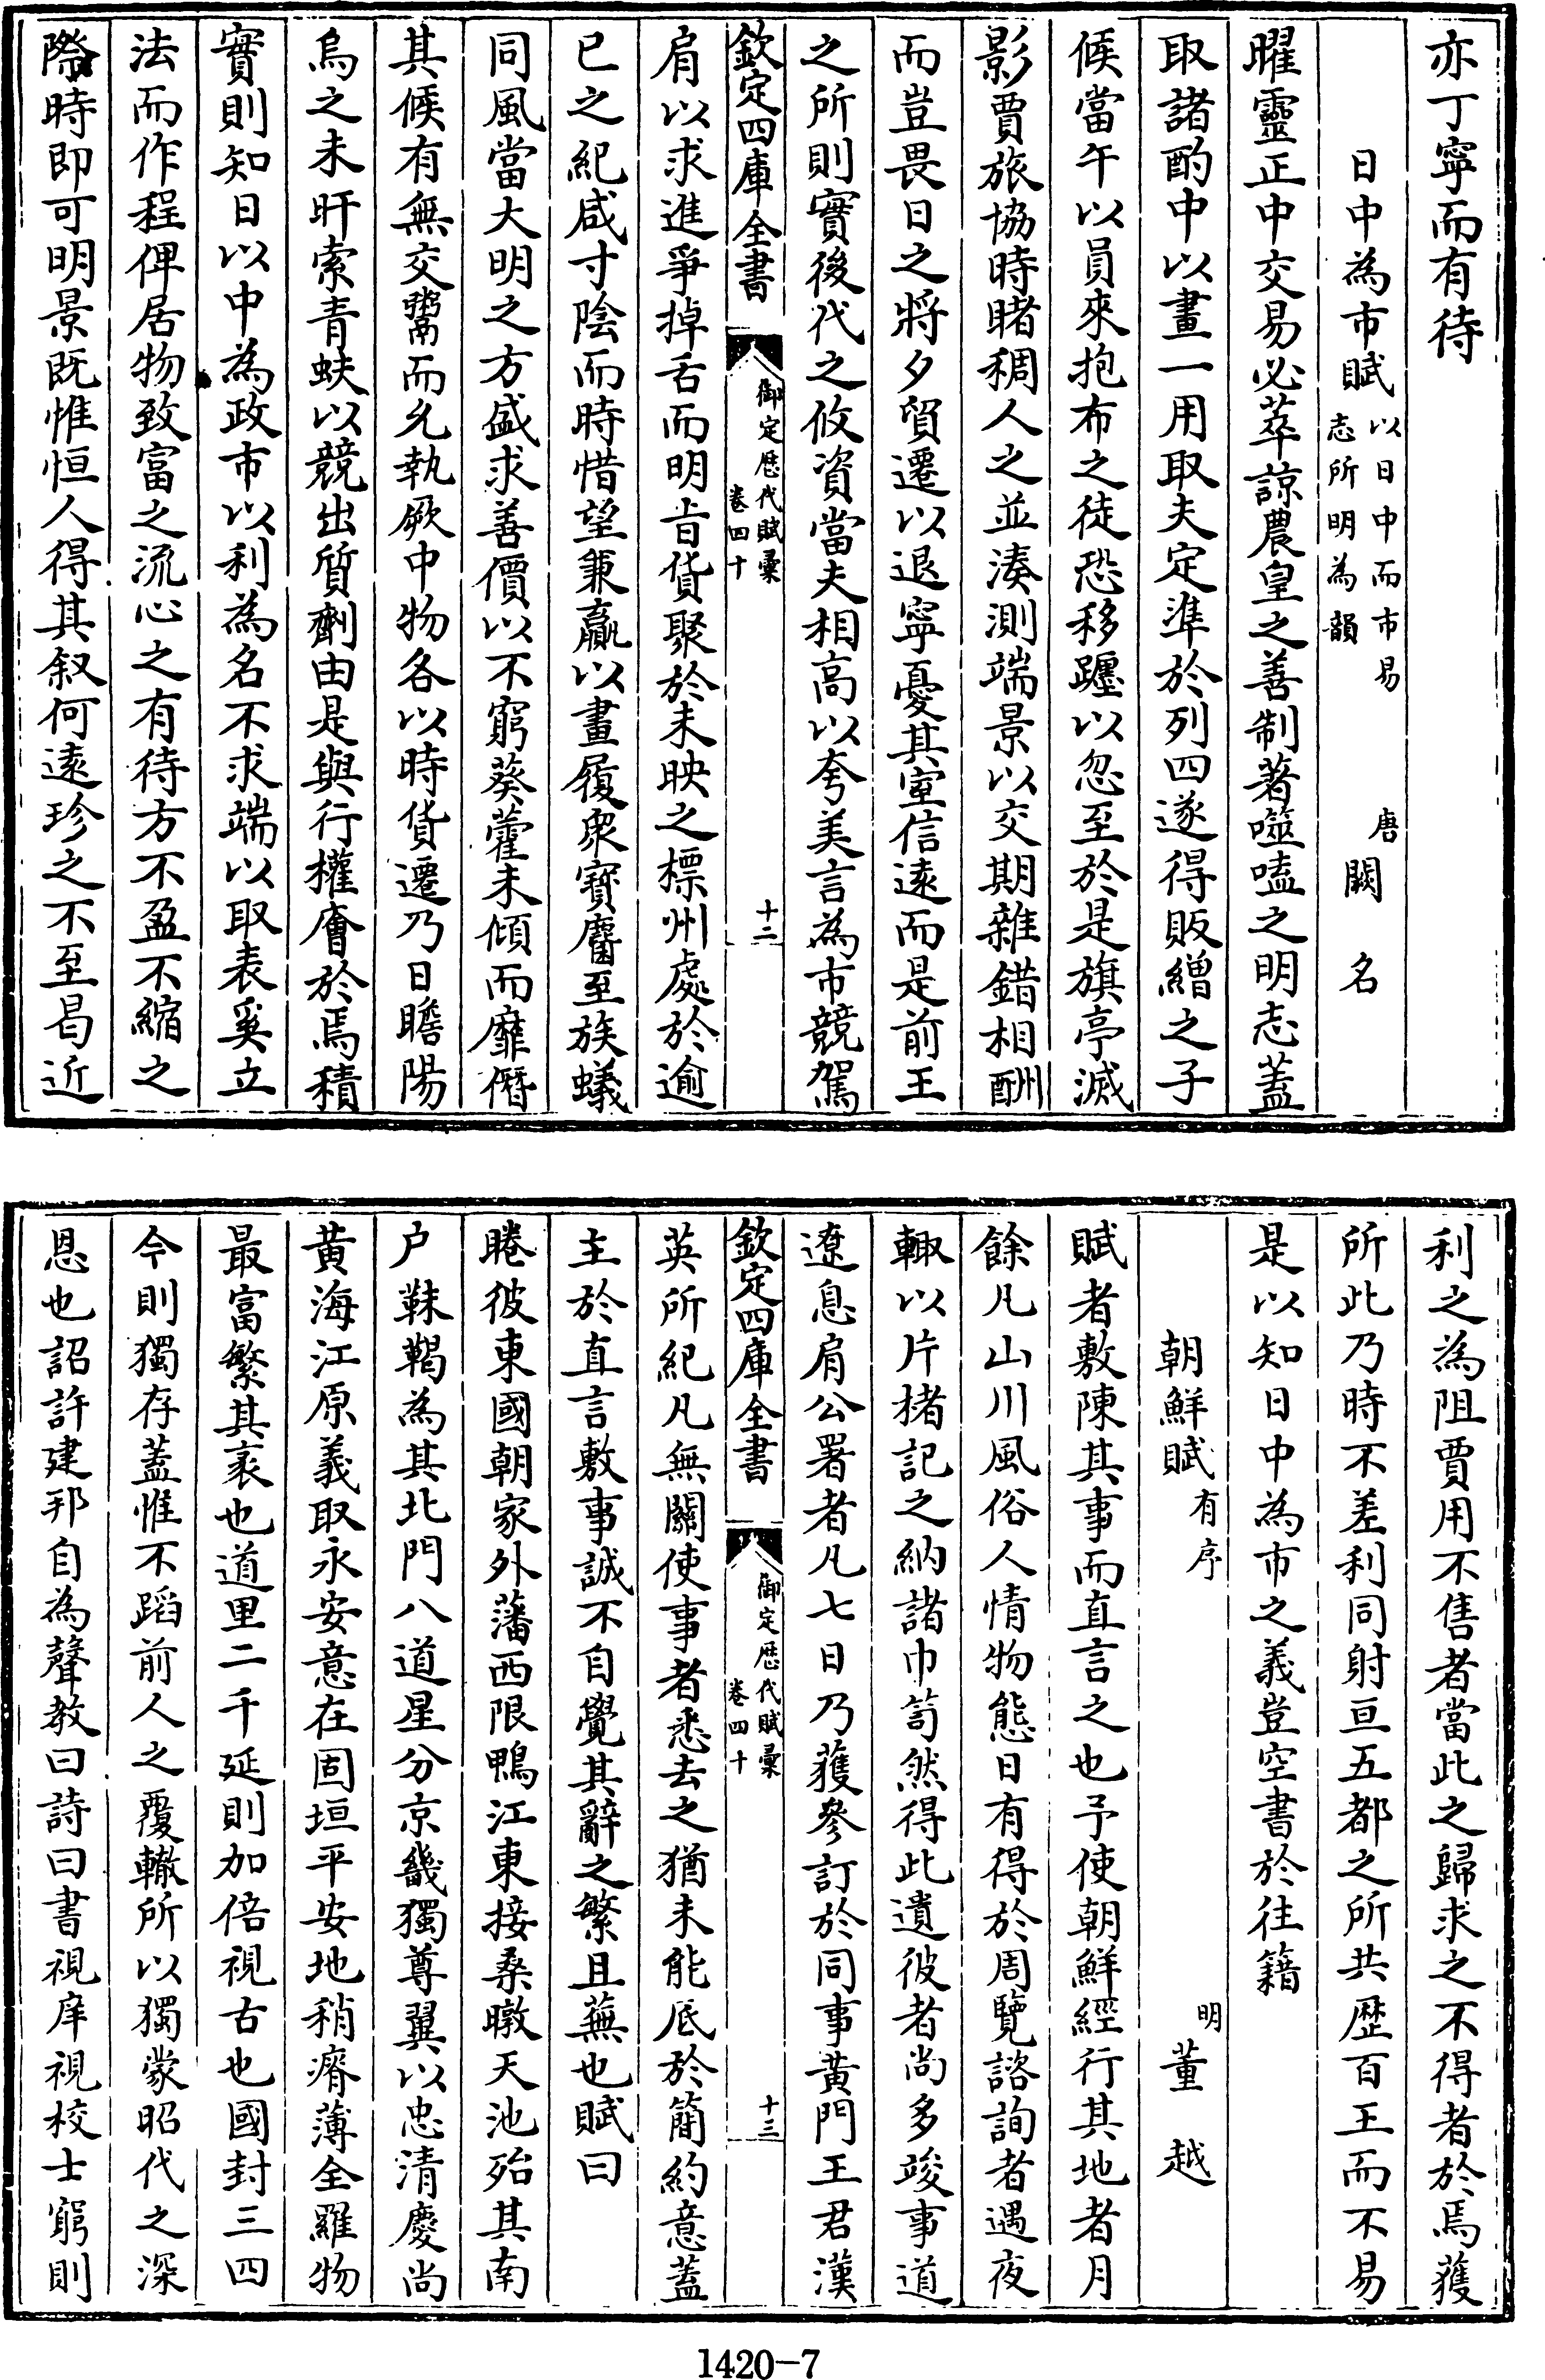 亦丁寧而有待
日中為市賦以日中而市易志所明為韻 唐闕名
曜靈正中交易必萃諒農皇之善制著噬嗑之明志蓋
取諸酌中以畫一用取夫定準於列四遂得販繒之子
候當午以員來抱布之徒恐移躔以忽至於是旗亭滅
影賈旅協時睹稠人之並湊測端景以交期雜錯相酬
而豈畏日之將夕貿遷以退寧憂其室信遠而是前王
之所則實後代之攸資當夫相高以夸美言為市競駕
欽定四庫全書 御定歷代賦彙卷四十 十二
肩以求進爭掉舌而明㫖貨聚於未映之標州處於逾
已之紀咸寸陰而時惜望兼贏以畫履衆寶麕至族蟻
同風當大明之方盛求善價以不窮葵藿未傾而靡僭
其候有無交鬻而允執厥中物各以時貨遷乃日瞻陽
烏之未旰索青蚨以競出質劑由是與行權㑹於焉積
實則知日以中為政市以利為名不求端以取表奚立
法而作程俾居物致富之流心之有待方不盈不縮之
際時即可明景既惟恒人得其叙何遠珍之不至曷近
利之為阻賈用不售者當此之歸求之不得者於焉獲
所此乃時不差利同射亘五都之所共歴百王而不易
是以知日中為市之義豈空書於往籍
朝鮮賦有序 明董越
賦者敷陳其事而直言之也予使朝鮮經行其地者月
餘凡山川風俗人情物態日有得於周覽諮詢者遇夜
輙以片楮記之納諸巾笥然得此遺彼者尚多竣事道
遼息肩公署者凡七日乃獲參訂於同事黄門王君漢
欽定四庫全書 御定歷代賦彙卷四十 十三
英所紀凡無關使事者悉去之猶未能底於簡約意蓋
主於直言敷事誠不自覺其辭之繁且蕪也賦曰
睠彼東國朝家外藩西限鴨江東接桑暾天池殆其南
户靺鞨為其北門八道星分京畿獨尊翼以忠清慶尚
黄海江原義取永安意在固垣平安地稍瘠薄全羅物
最富繁其袤也道里二千延則加倍視古也國封三四
今則獨存蓋惟不蹈前人之覆轍所以獨蒙昭代之深
恩也詔許建邦自為聲教曰詩曰書視庠視校士窮則
1420-7